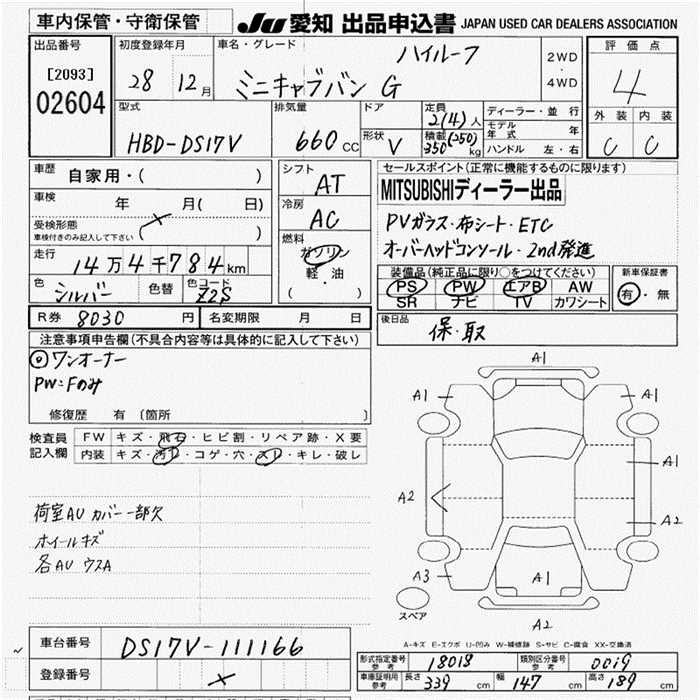 車内保管・守衛保管 JU愛知 出品申込書 JAPAN USED CAR DEALERS ASSOCIATION
出品番号
[2093]
02604
初度登録年月
28 12月
車名・グレード
ハイルーフ
ミニキャブバン G
2WD
・
4WD
評価点
4
外装 内装
C C
型式
HBD-DS17V
排気量
660 CC
ドア
形状 V
定員 2(4)人
積載 350(250) kg
ディーラー・並行
モデル年式 年
ハンドル 左・右
車歴
自家用・( )
車検
年 月( 日)
受検形態
車検付きのみ記入して下さい ( )
走行
14万4千784km
色 シルバー 色替 色コード Z2S
シフト
AT
冷房
AC
燃料
ガソリン
軽・油
( ・ )
セールスポイント(正常に機能するものに限ります)
MITSUBISHIディーラー出品
PVガラス・布シート・ETC
オーバーヘッドコンソール・2nd発進
装備品(純正品に限り○をつけてください)
PS PW エアB AW
SR ナビ TV カワシート
新車保証書
有・無
R券 8030 円 名変期限 月 日
後日品
保・取
注意事項申告欄(不具合内容等は具体的に記入して下さい)
◎ワンオーナー
PW=Fのみ
修復歴 有(箇所 )
検査員
記入欄
FW キズ・飛石・ヒビ割・リペア跡・X要
内装 キズ・汚れ・コゲ・穴・スレ・キレ・破レ
荷室AU カバー一部欠
ホイールキズ
各AU ウスA
A1
A1
A1
A1
A2
A2
A3
A1
A2
スペア
A-キズ E-エクボ U-凹み W-補修跡 S-サビ C-腐食 XX-交換済
車台番号 DS17V-111166
登録番号
形式指定番号 参考 18018 類別区分番号 参考 0019
車庫証明用 参考 長さ 339 cm 幅 147 cm 高さ 189 cm